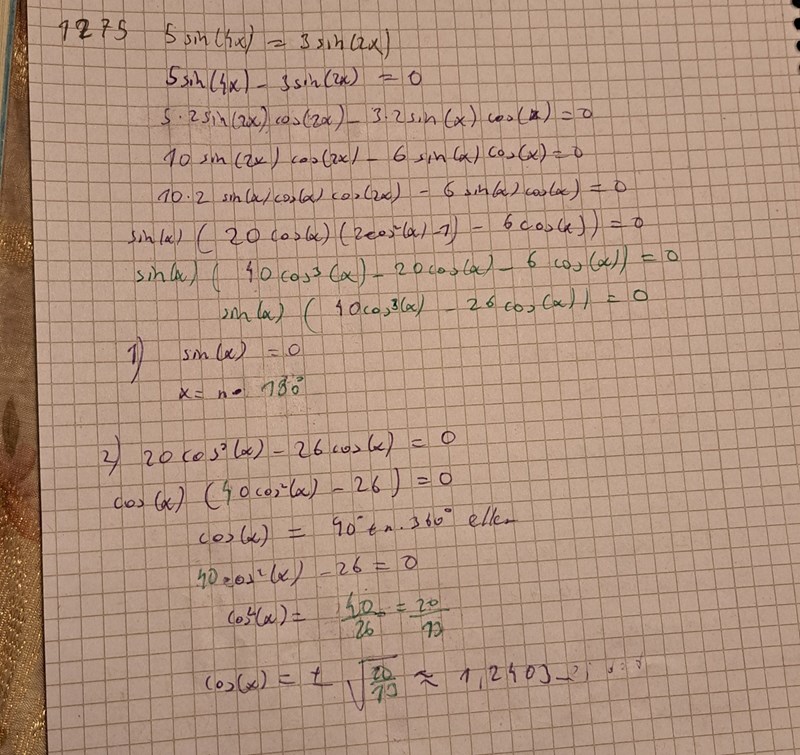 1275 5 sin(4x) = 3 sin(2x)
5 sin(4x) - 3 sin(2x) = 0
5·2 sin(2x) cos(2x) - 3·2 sin(x) cos(x) = 0
10 sin(2x) cos(2x) - 6 sin(x) cos(x) = 0
10·2 sin(x) cos(x) cos(2x) - 6 sin(x) cos(x) = 0
sin(x) ( 20 cos(x) (2cos²(x) - 1) - 6 cos(x)) = 0
sin(x) ( 40 cos³(x) - 20 cos(x) - 6 cos(x)) = 0
sin(x) ( 40 cos³(x) - 26 cos(x)) = 0
1) sin(x) = 0
x = n · 180°
2) 20 cos³(x) - 26 cos(x) = 0
cos(x) (40 cos²(x) - 26) = 0
cos(x) = 90° ± n · 360° eller
40 cos²(x) - 26 = 0
cos²(x) = 40/26 = 20/13
cos(x) = ± √(20/13) ≈ 1,2403